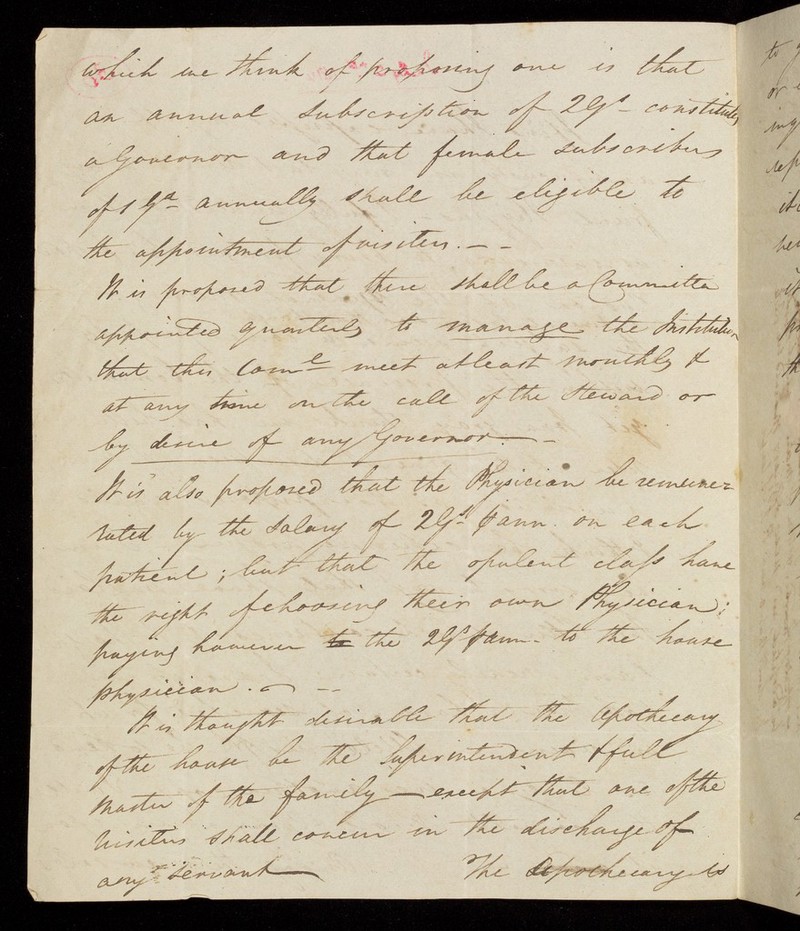 which we think of proposing one is that
an annual subscription of 2 Gs- constitutes
a Governor and that female subscribers
of 1 Ga annually shall be eligible to
the appointment of visiters. — -
It is proposed that there shall be a Committee
appointed quarterly to manage the Institution
that this Come meet at least monthly &
at any time on the call of the Steward or
by desire of any Governor — -
It is also proposed that the Physician be remune=
rated by the salary of 2 Gs ⅌ ann. on each
patient; but that the opulent class have
the right of choosing their own Physician;
paying however to the 2 Gs ⅌ ann- to the house
physician. — --
It is thought desirable that the apothecary
of the house be the Superintendent & full
master of the family — except that one of the
visiters shall concur in the discharge of
any servant — The apothecary is